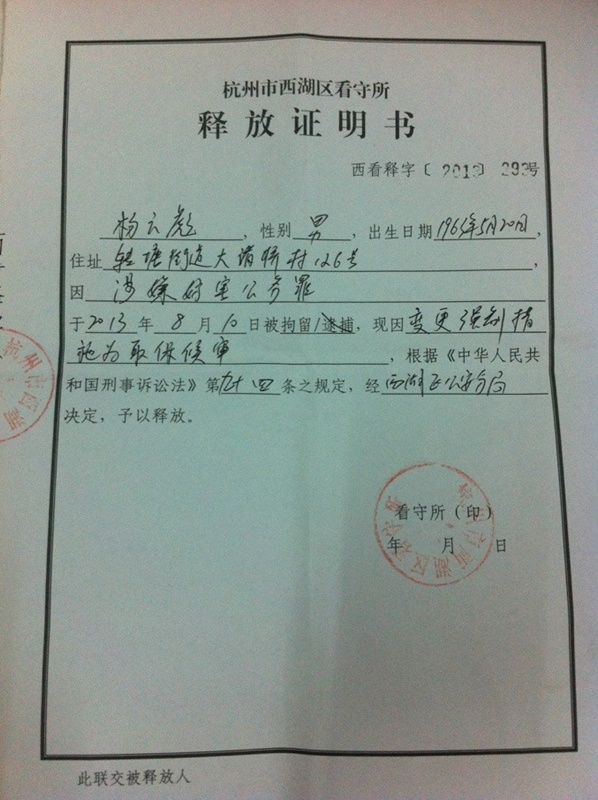 杭州市西湖区看守所
释放证明书
西看释字〔2013〕293号
杨云彪，性别 男，出生日期196 年5月20日，
住址 转塘街道大诸桥村126号，
因 涉嫌妨害公务罪
于2013年8月10日被拘留/逮捕，现因变更强制措
施为取保候审，根据《中华人民共
和国刑事诉讼法》第九十四条之规定，经西湖区公安分局
决定，予以释放。
看守所（印）
年 月 日
此联交被释放人